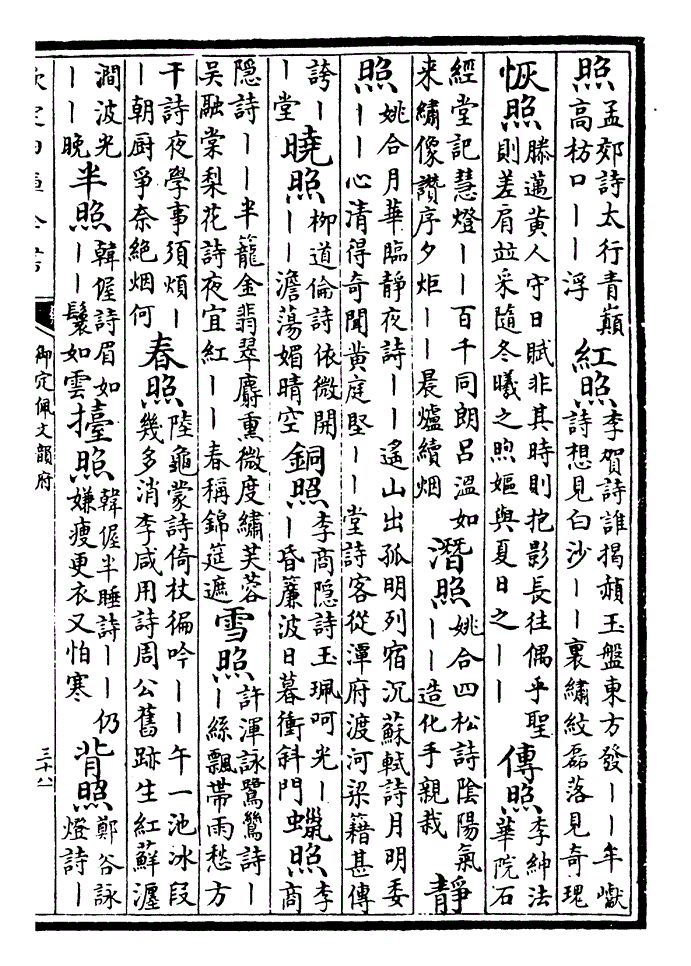 照孟郊詩太行青巔
高枋口丨丨浮
紅照李賀詩誰揭赬玉盤東方發丨丨年巘
詩想見白沙丨丨裏繡紋磊落見奇瑰
恢照滕邁黄人守日賦非其時則抱影長往偶乎聖
則差肩並采隨冬曦之煦嫗與夏日之丨丨
傳照李紳法
華院石
經堂記慧燈丨丨百千同朗吕溫如
来繡像讚序夕炬丨丨晨爐續烟
潛照姚合四松詩隂陽氣
丨丨造化手親栽
靜
照姚合月華臨靜夜詩丨丨遙山出孤明列宿沉蘇軾詩月明委
丨丨心清得奇聞黄庭堅丨丨堂詩客從潭府渡河梁籍甚傳
誇丨
丨堂
曉照柳道倫詩依微開
丨丨澹蕩媚晴空
銅照李商隱詩玉珮呵光丨
丨昏簾波日暮衝斜門
蠟照李
商
隱詩丨丨半籠金翡翠麝熏微度繡芙蓉
吴融棠梨花詩夜宜紅丨丨春稱錦筵遮
雪照許渾詠鷺鷥詩丨
丨絲飄帶雨愁方
干詩夜學事須煩丨
丨朝厨爭奈絶烟何
春照陸龜蒙詩倚杖徧吟丨丨午一池冰段
幾多消李咸用詩周公舊跡生紅蘚澗
澗波光
丨丨晚
半照韓偓詩眉如
丨丨鬟如雲
擡照韓偓半睡詩丨丨仍
嫌瘦更衣又怕寒
背照鄭谷詠
燈詩丨
御定佩文韻府
三十八